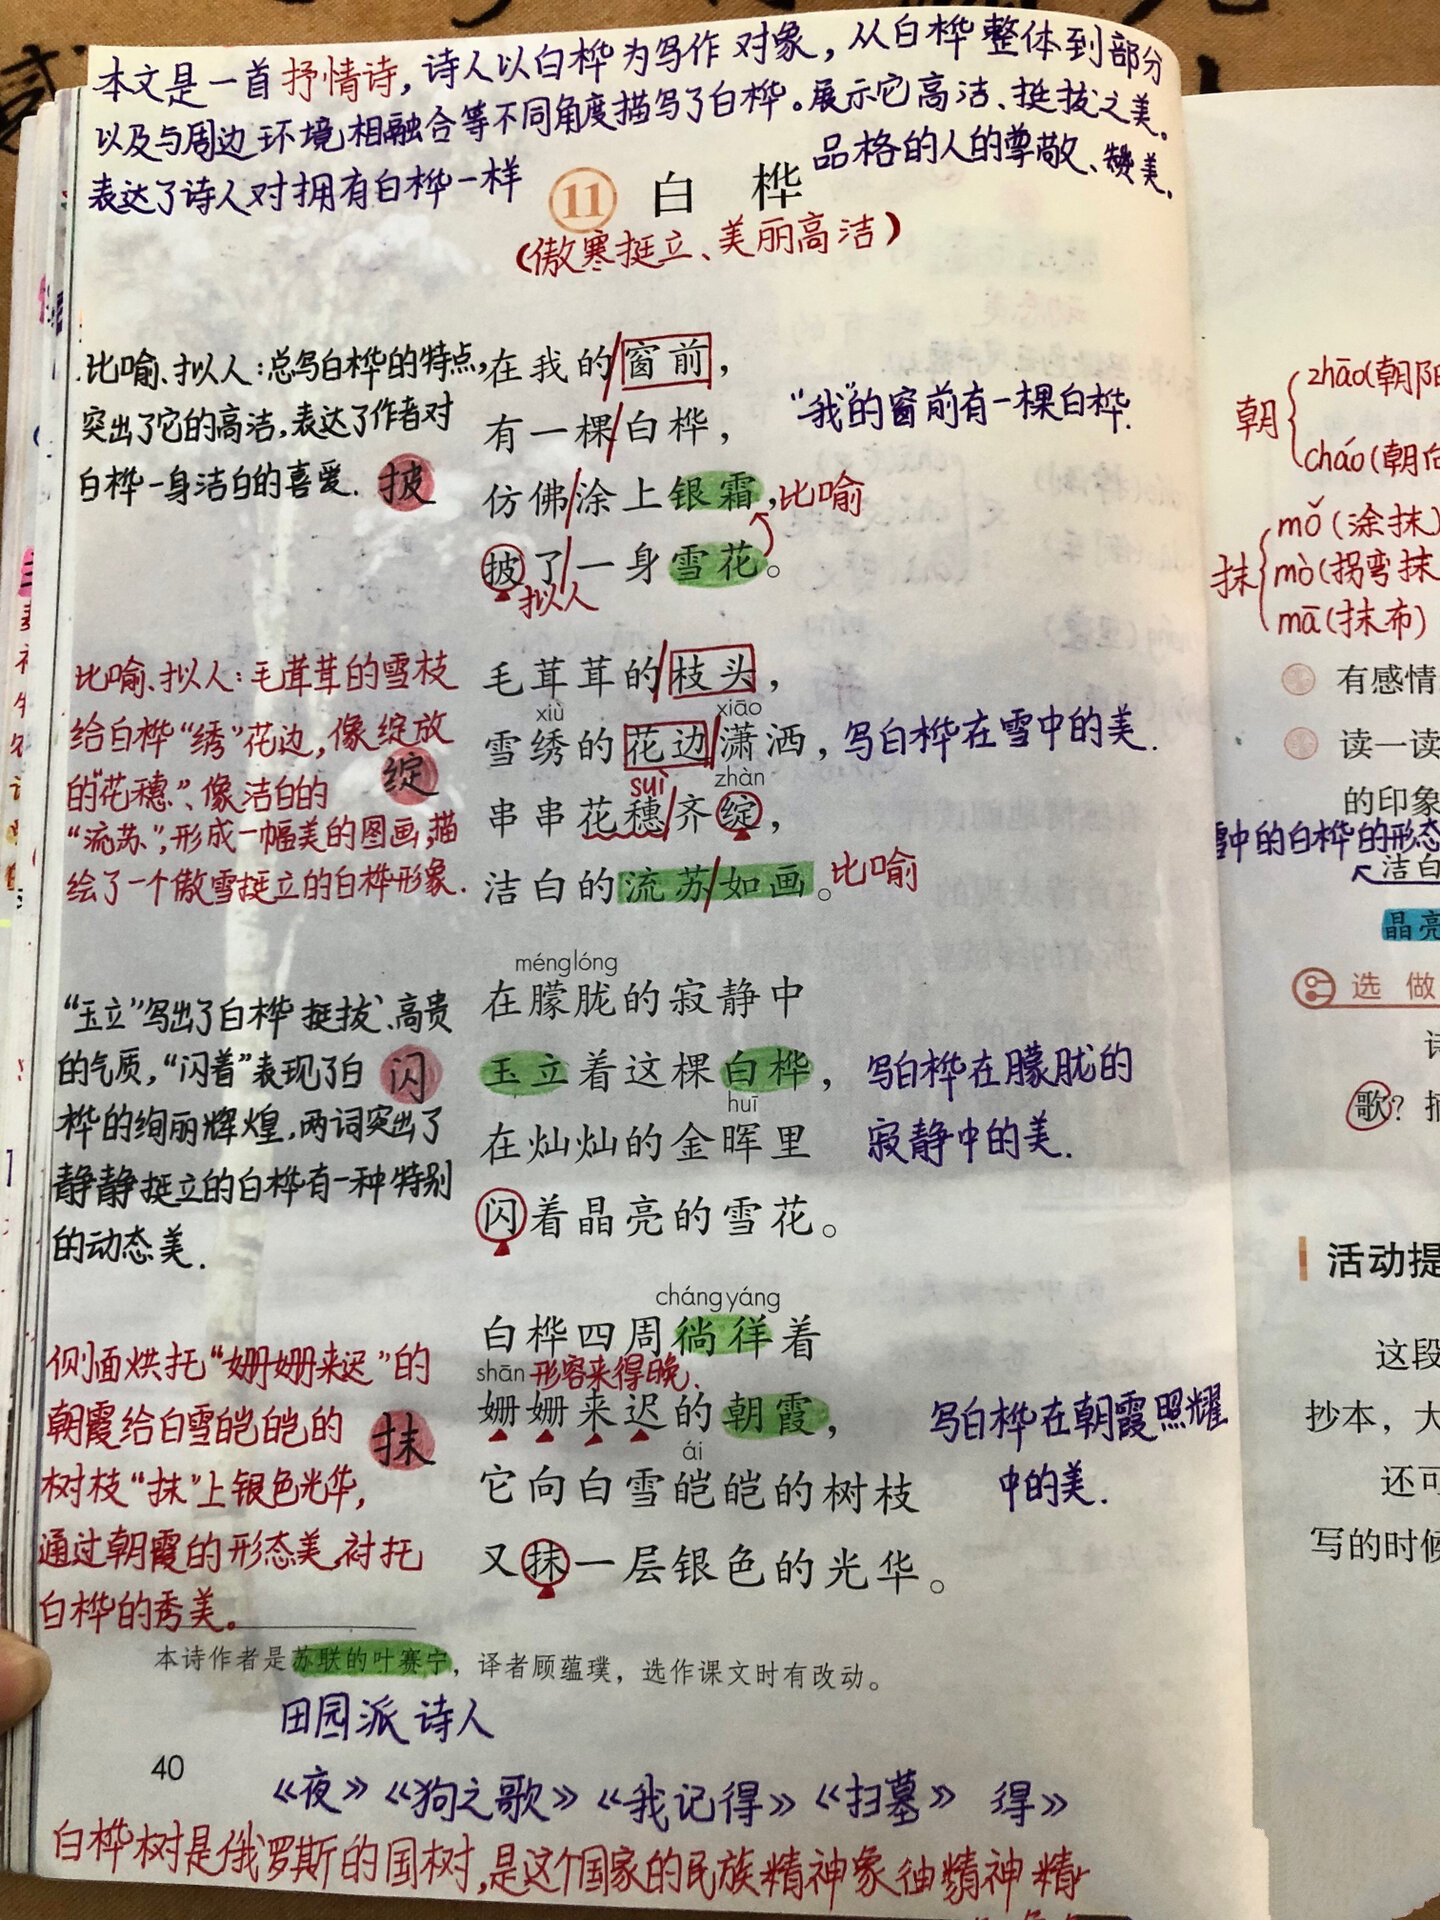 本文是一首抒情诗,诗人以白桦为写作对象,从白桦整体到部分
以及与周边环境相融合等不同角度描写了白桦。展示它高洁、挺拔之美。
表达了诗人对拥有白桦一样
品格的人的尊敬、赞美。
11 白桦
(傲寒挺立、美丽高洁)
比喻、拟人:总写白桦的特点,
突出了它的高洁,表达了作者对
白桦一身洁白的喜爱.
披
在我的/窗前,
有一棵/白桦,
仿佛/涂上银霜,
比喻
披了/一身雪花。
拟人
“我”的窗前有一棵白桦.
比喻、拟人:毛茸茸的雪枝
给白桦“绣”花边,像绽放
的“花穗”、像洁白的
“流苏”,形成一幅美的图画,描
绘了一个傲雪挺立的白桦形象.
绽
毛茸茸的/枝头,
xiù xiāo
雪绣的花边/潇洒,
suì zhàn
串串花穗/齐绽,
洁白的流苏/如画。
比喻
写白桦在雪中的美.
“玉立”写出了白桦挺拔、高贵
的气质,“闪着”表现了白
桦的绚丽辉煌,两词突出了
静静挺立的白桦有一种特别
的动态美.
闪
ménglóng
在朦胧的寂静中
玉立着这棵白桦,
huī
在灿灿的金晖里
闪着晶亮的雪花。
写白桦在朦胧的
寂静中的美.
侧面烘托“姗姗来迟”的
朝霞给白雪皑皑的
树枝“抹”上银色光华,
通过朝霞的形态美,衬托
白桦的秀美。
抹
chángyáng
白桦四周徜徉着
shān 形容来得晚.
姗姗来迟的朝霞,
ái
它向白雪皑皑的树枝
又抹一层银色的光华。
写白桦在朝霞照耀
中的美.
本诗作者是苏联的叶赛宁,译者顾蕴璞,选作课文时有改动。
田园派诗人
40
《夜》《狗之歌》《我记得》《扫墓》 得》
白桦树是俄罗斯的国树,是这个国家的民族精神象
朝
zhāo(朝阳
cháo(朝向
抹
mǒ(涂抹)
mò(拐弯抹
mā(抹布)
有感情
读一读
的印象
雪中的白桦的形态
洁白
晶亮
选做
歌?
活动提
这段
抄本,大
还可
写的时候